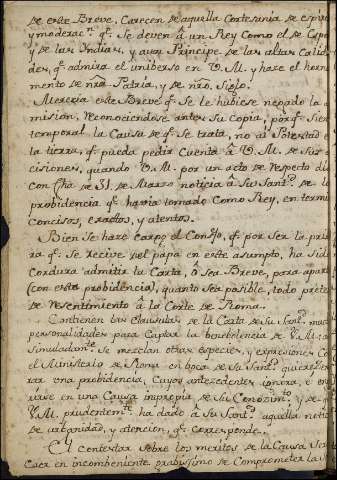 de este Breve, Carecen de aquella Cortesania de espiri
y moderacn. qe. Se deven â un Rey Como el de Espa
y de las Indias, y a un Principe de las altas Calid
des, qe. admira el universo en V.M. y haze el horna
mento de nra. Patria, y de nro. Siglo.
Merecia este Breve qe. Se le hubiese negado la a
mision, reconociendose antes Su Copia, porqe. Sien
temporal la Causa de qe. Se trata, no ai Potestad e
la tierra, qe. pueda pedir Cuenta â V.M. de Sus
cisiones, quando V.M. por un acto de respeto di
con fha de 31. de Marzo noticia â Su Santd. de l
probidencia qe. havia tomado Como Rey, en termin
concisos, exactos, y atentos.
Bien Se haze Cargo el Consejo, qe. por ser la prim
ra qe. Se recive del papa en este asumpto, ha Sid
Cordura admitir la Carta, ô Sea Breve, para apar
(con esta probidencia) quanto Sea posible, todo prete
de resentimiento â la Corte de Roma.
Contienen las Clausulas de la Carta de Su Santd. muc
personalidades para Captar la benebolencia de V.M.
Simuladamte. Se mezclan otras especies, y expresiones Co
el Ministerio de Roma en boca de Su Santd. quiere
rar una probidencia, Cuyos antecedentes ignora, e en
rirse en una Causa impropia de Su Conocimto. y de
V.M. prudentemte. ha dado â Su Santd. aquella notic
de urbanidad, y atencion, qe. corresponde.
El contextar Sobre los meritos de la Causa Se
Caer en incombeniente grabissimo de Comprometer la S